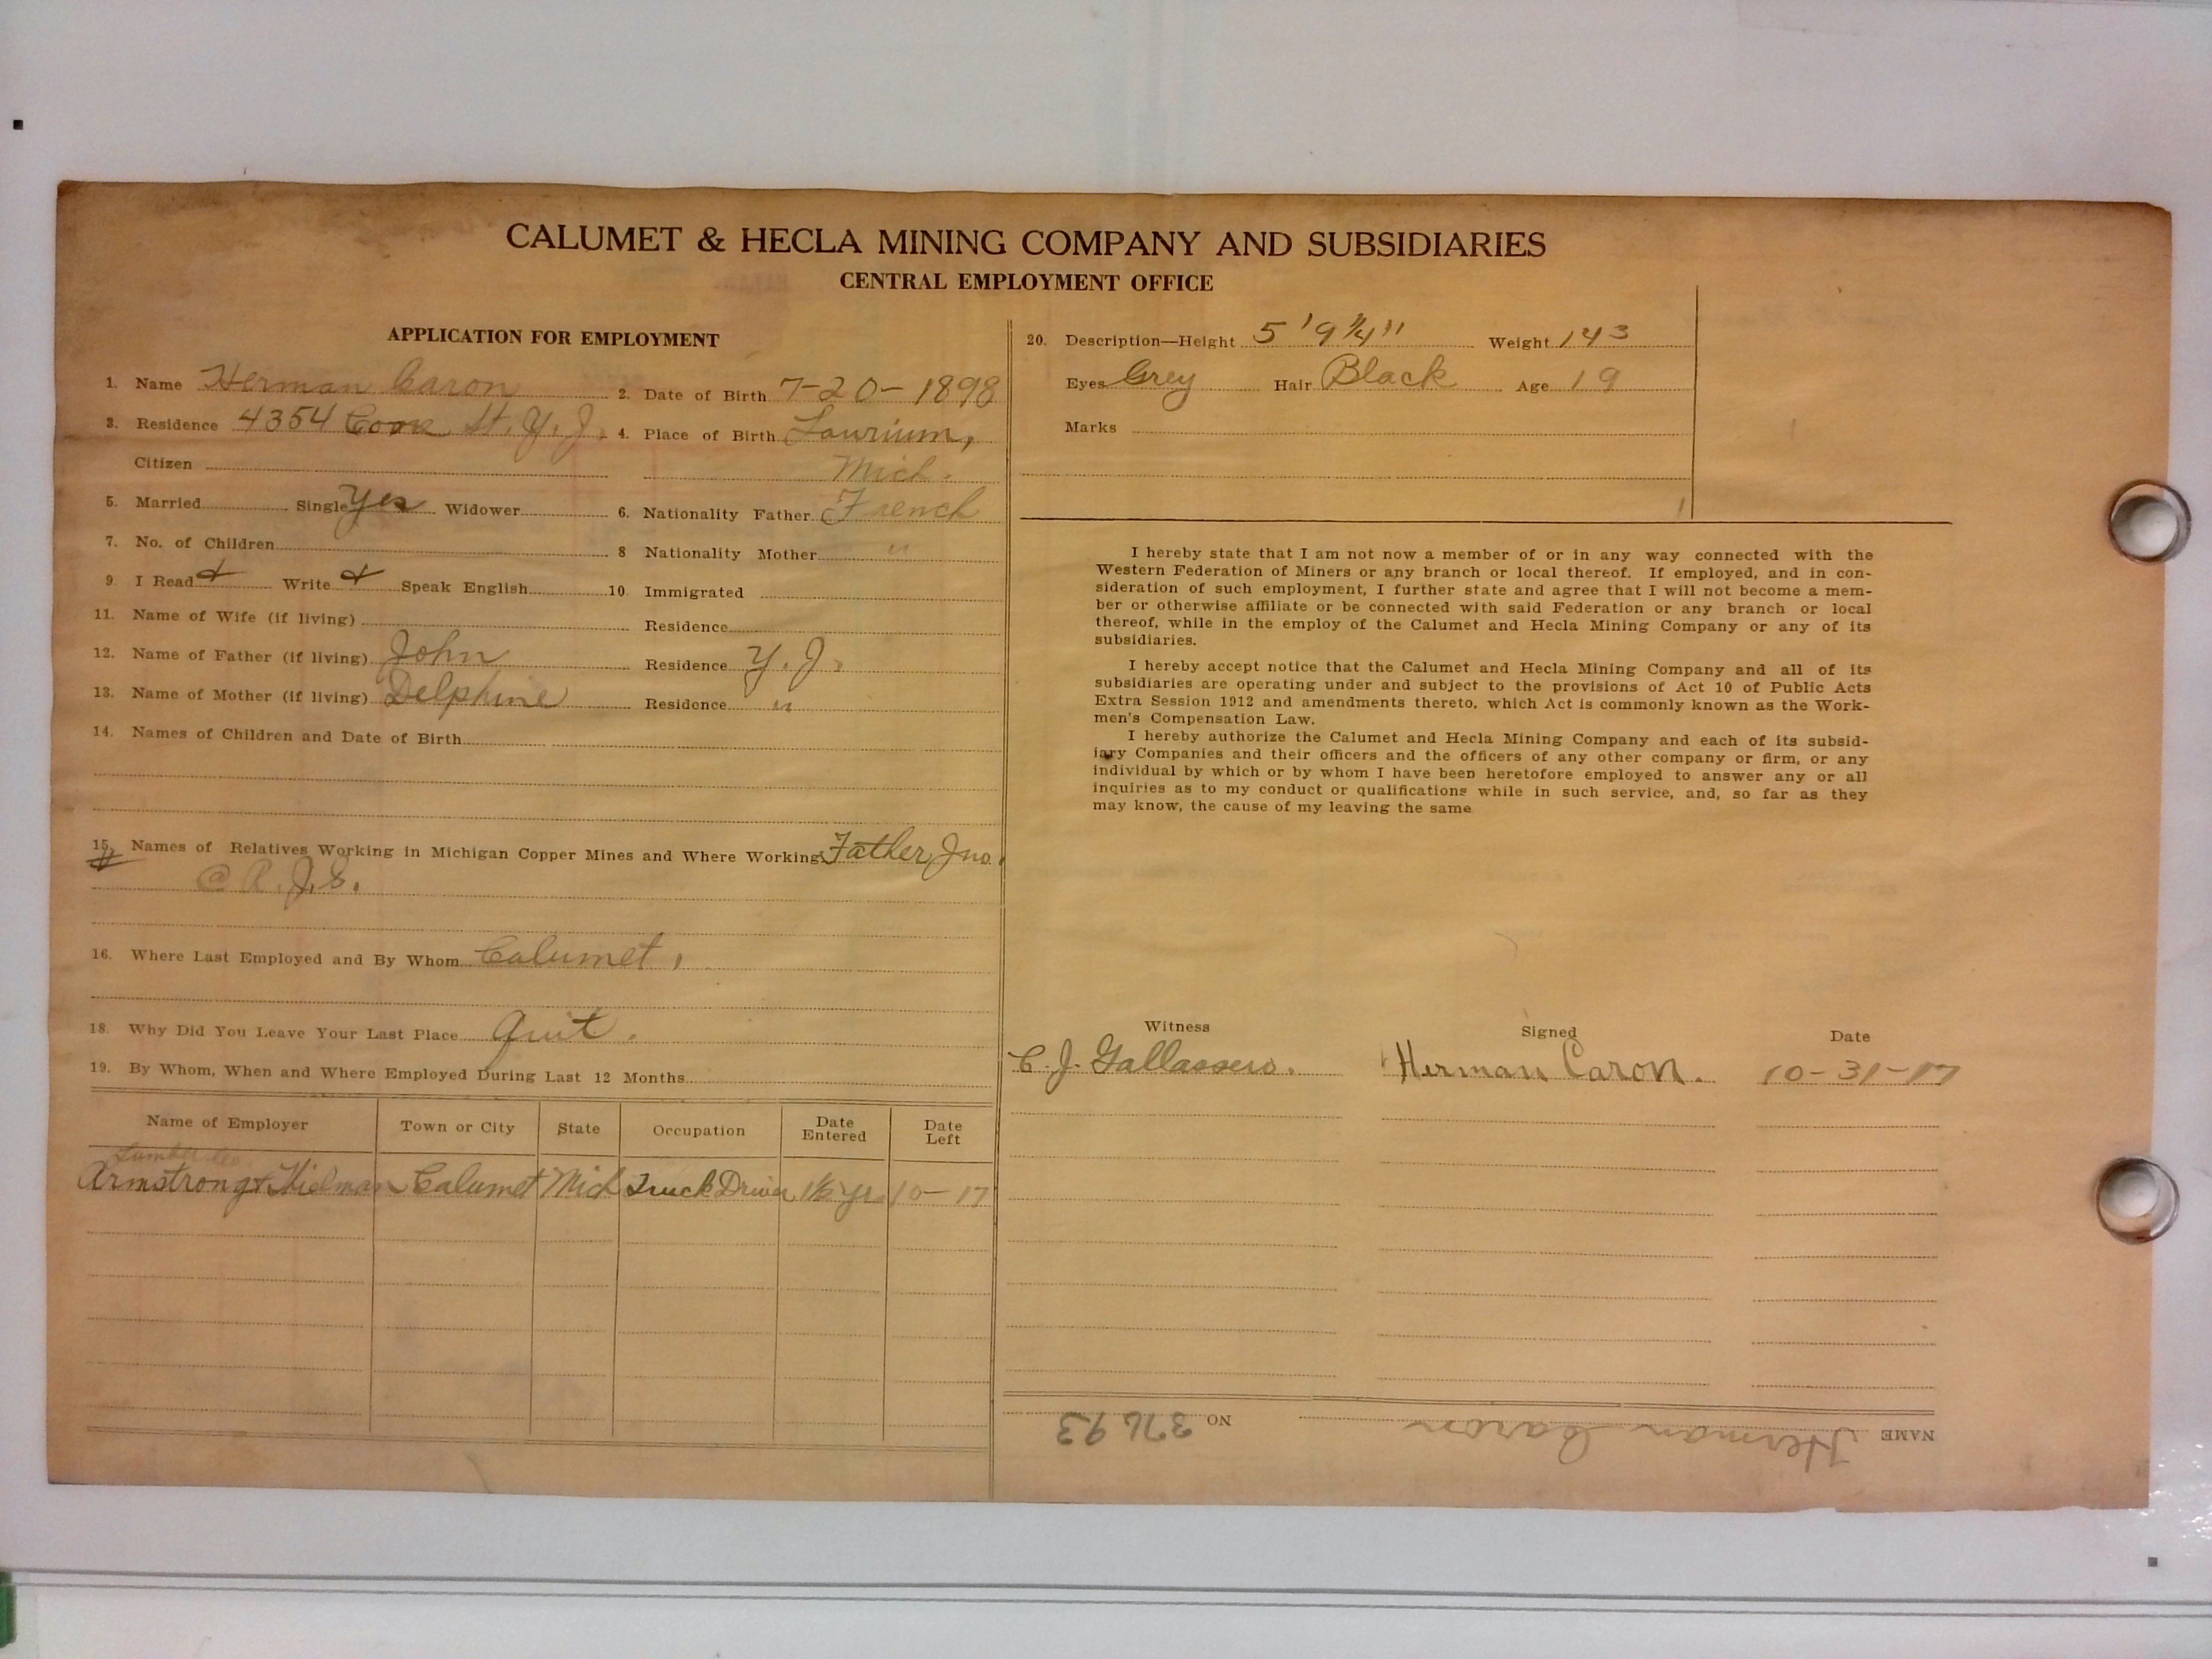 CALUMET & HECLA MINING COMPANY AND SUBSIDIARIES
CENTRAL EMPLOYMENT OFFICE
APPLICATION FOR EMPLOYMENT
1. Name Herman Caron 2. Date of Birth 7-20-1898
3. Residence 4354 Cone St. Y. J. 4. Place of Birth Laurium,
Citizen Mich.
5. Married Single Yes Widower 6. Nationality Father French
7. No. of Children 8 Nationality Mother "
9. I Read + Write + Speak English 10. Immigrated
11. Name of Wife (if living) Residence
12. Name of Father (if living) John Residence Y. J.
13. Name of Mother (if living) Delphine Residence "
14. Names of Children and Date of Birth
15. Names of Relatives Working in Michigan Copper Mines and Where Working Father, Jno.
@ R. J. S.
16. Where Last Employed and By Whom Calumet,
18. Why Did You Leave Your Last Place Quit.
19. By Whom, When and Where Employed During Last 12 Months
Name of Employer Town or City State Occupation Date Entered Date Left
Lumber Co.
Armstrong & Thielman Calumet Mich Truck Driver 1½ yr 10-17
20. Description—Height 5' 9 1/4" Weight 143
Eyes Grey Hair Black Age 19
Marks
I hereby state that I am not now a member of or in any way connected with the
Western Federation of Miners or any branch or local thereof. If employed, and in con-
sideration of such employment, I further state and agree that I will not become a mem-
ber or otherwise affiliate or be connected with said Federation or any branch or local
thereof, while in the employ of the Calumet and Hecla Mining Company or any of its
subsidiaries.
I hereby accept notice that the Calumet and Hecla Mining Company and all of its
subsidiaries are operating under and subject to the provisions of Act 10 of Public Acts
Extra Session 1912 and amendments thereto, which Act is commonly known as the Work-
men's Compensation Law.
I hereby authorize the Calumet and Hecla Mining Company and each of its subsid-
iary Companies and their officers and the officers of any other company or firm, or any
individual by which or by whom I have been heretofore employed to answer any or all
inquiries as to my conduct or qualifications while in such service, and, so far as they
may know, the cause of my leaving the same
Witness Signed Date
C. J. Gallassero. Herman Caron. 10-31-17
NAME Herman Caron NO 37693